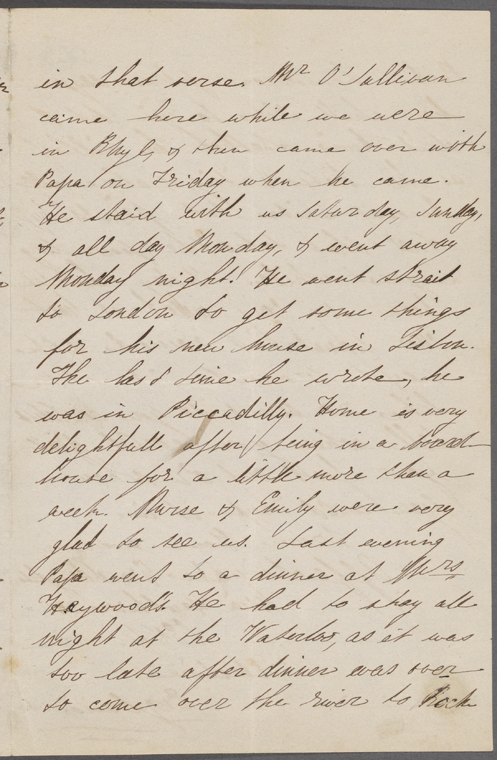 in that verse. Mr O'Sullivan
came here while we were
in Rhyl, & then came over with
Papa on Friday when he came.
He staid with us Saturday, Sunday,
& all day Monday, & went away
Monday night. He went strait
to London to get some things
for his new house in Lisbon.
The last time he wrote, he
was in Piccadilly. Home is very
delightfull after being in a board
house for a little more than a
week. Nurse & Emily were very
glad to see us. Last evening
Papa went to a dinner at Mrs
Haywood's He had to stay all
night at the Waterloo, as it was
too late after dinner was over
to come over the river to Rock